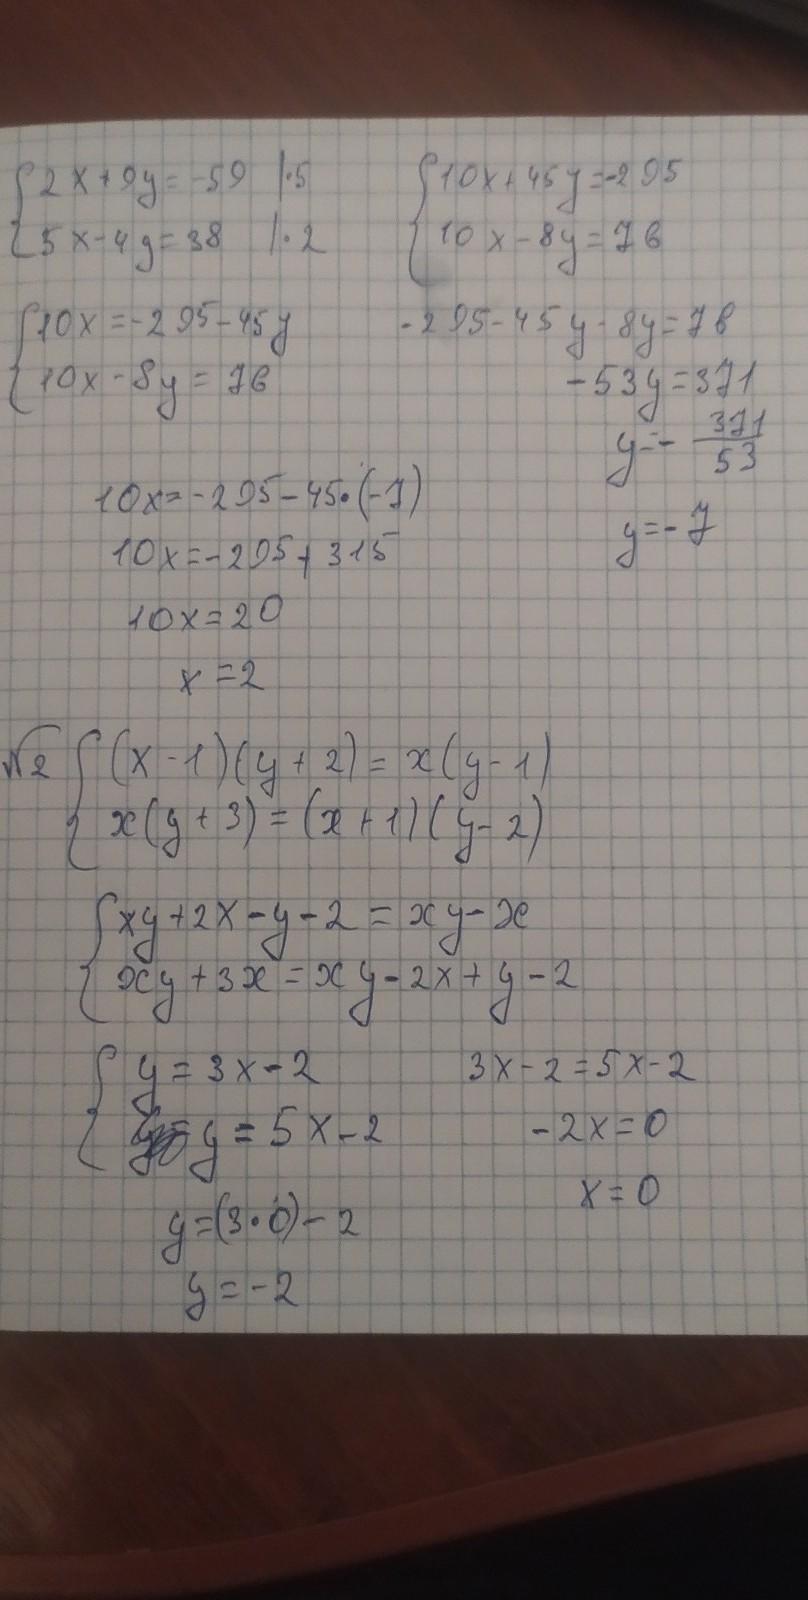 {2x+9y=-59 |·5
{5x-4y=38 |·2
{10x+45y=-295
{10x-8y=76
{10x=-295-45y
{10x-8y=76
-295-45y-8y=76
-53y=371
y=-371/53
y=-7
10x=-295-45·(-7)
10x=-295+315
10x=20
x=2
√2 {(x-1)(y+2)=x(y-1)
{x(y+3)=(x+1)(y-2)
{xy+2x-y-2=xy-x
{xy+3x=xy-2x+y-2
{y=3x-2
{y=5x-2
3x-2=5x-2
-2x=0
x=0
y=(3·0)-2
y=-2